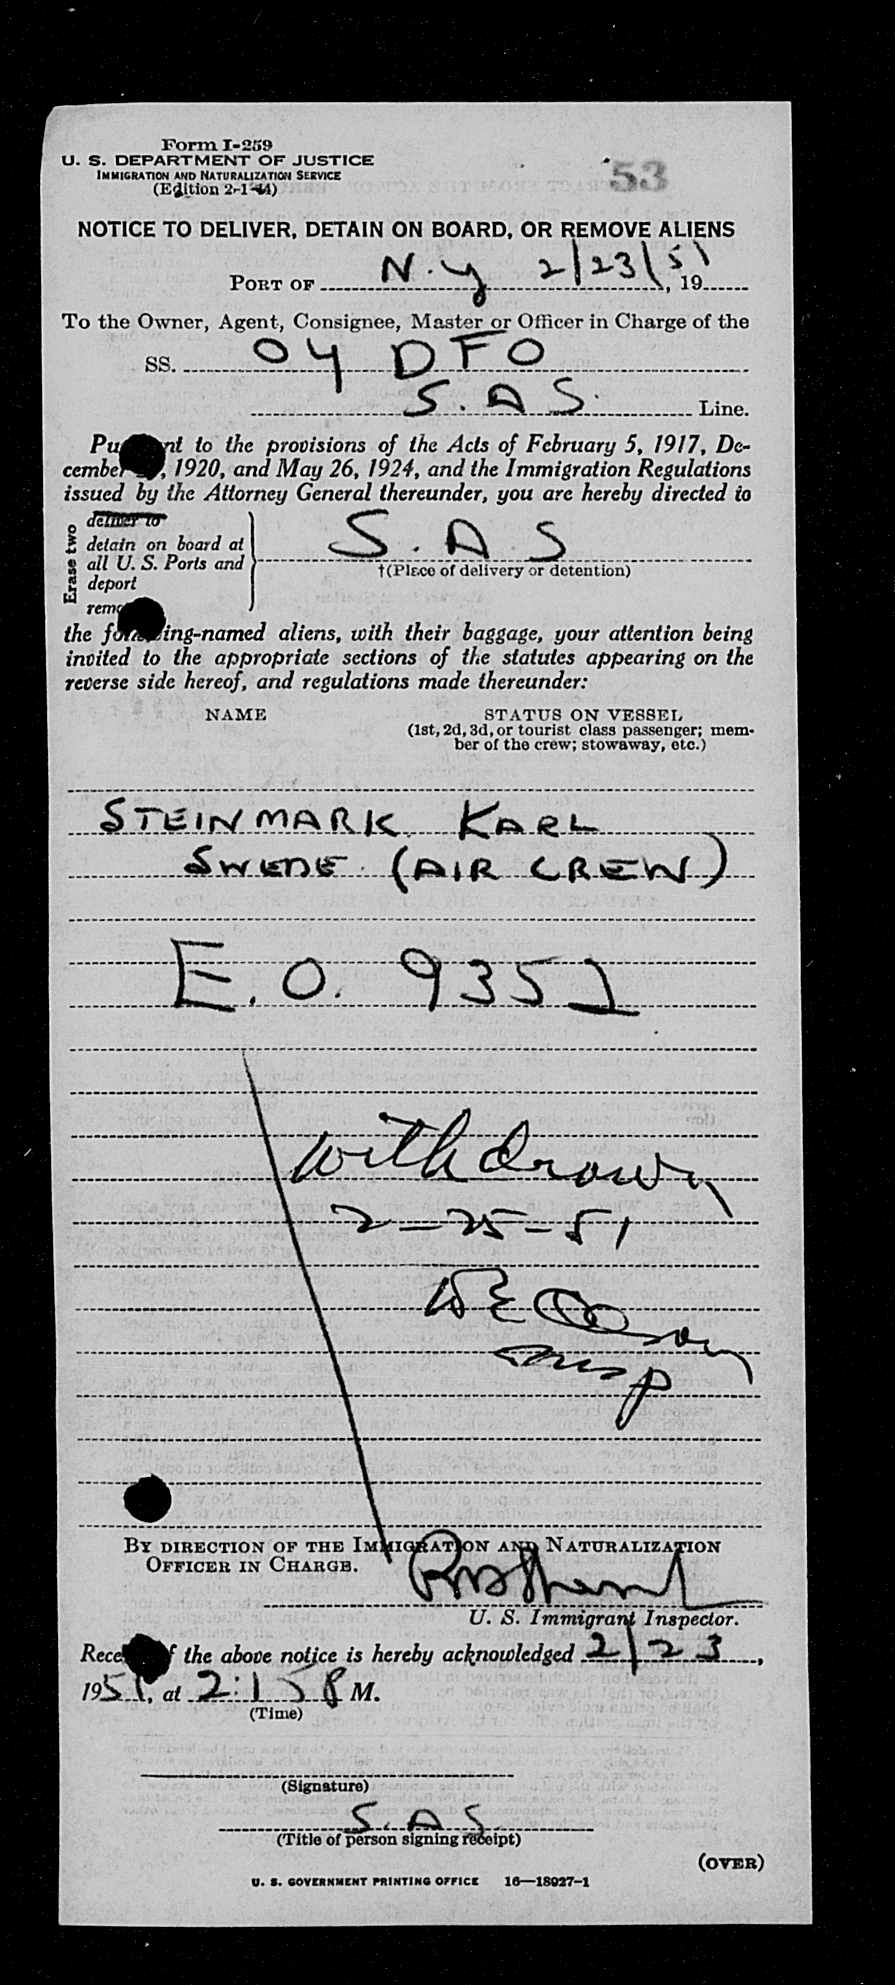 Form I-259
U. S. DEPARTMENT OF JUSTICE
IMMIGRATION AND NATURALIZATION SERVICE
(Edition 2-1-44)
53
NOTICE TO DELIVER, DETAIN ON BOARD, OR REMOVE ALIENS
PORT OF N.Y 2/23/51, 19
To the Owner, Agent, Consignee, Master or Officer in Charge of the
SS. OY DFO
S.A.S. Line.
Pu nt to the provisions of the Acts of February 5, 1917, De-
cember , 1920, and May 26, 1924, and the Immigration Regulations
issued by the Attorney General thereunder, you are hereby directed to
Erase two
deliver to
detain on board at
all U. S. Ports and
deport
remo
S.A.S
†(Place of delivery or detention)
the following-named aliens, with their baggage, your attention being
invited to the appropriate sections of the statutes appearing on the
reverse side hereof, and regulations made thereunder:
NAME STATUS ON VESSEL
(1st, 2d, 3d, or tourist class passenger; mem-
ber of the crew; stowaway, etc.)
STEINMARK KARL
SWEDE. (AIR CREW)
E.O. 9352
withdrawn
2-25-51
Olson
Insp
BY DIRECTION OF THE IMMIGRATION AND NATURALIZATION
OFFICER IN CHARGE.
U. S. Immigrant Inspector.
Rece f the above notice is hereby acknowledged 2/23,
1951, at 2:15 P M.
(Time)
(Signature)
S.A.S.
(Title of person signing receipt)
(OVER)
U. S. GOVERNMENT PRINTING OFFICE 16—18927-1